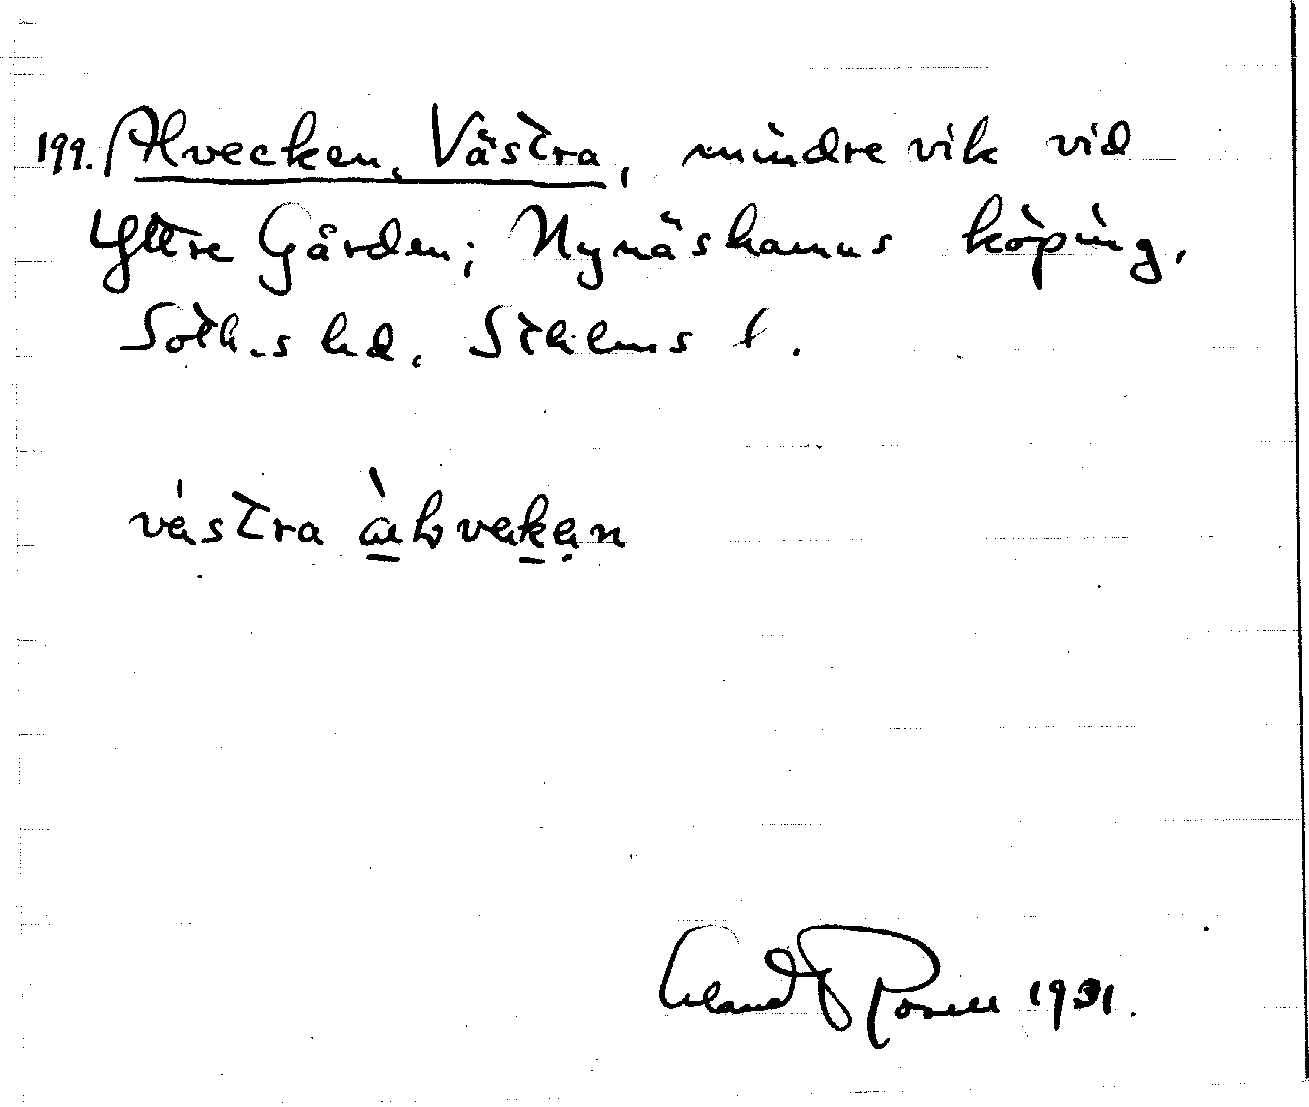 199. Alvecken, Västra, mindre vik vid
Yttre Gården; Nynäshamns köping,
Soth.s hd. Sthlms l.
västra àlvekan
Erland Rosell 1931.